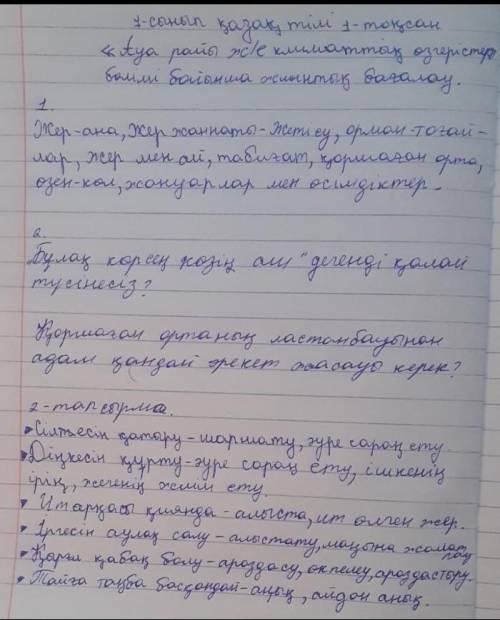 7-сынып қазақ тілі 1-тоқсан
«Ауа райы ж/е климаттық өзгерістер
бөлімі бойынша жиынтық бағалау.
1.
Жер-ана, Жер жаннаты-Жетісу, орман-тоғай-
лар, жер мен ай, табиғат, қоршаған орта,
өзен-көл, жануарлар мен өсімдіктер.
2.
Бұлақ көрсең көзің аш" дегенді қалай
түсінесіз?
Қоршаған ортаның ластанбауынан
адам қандай әрекет жасауы керек?
2-тапсырма.
• Сілтесін қатыру-шаршату, әуре сарсаң ету.
• Діңкесін құрту-әуре сарсаң ету, ішкенің
ірің, жегенің желім ету.
• Ит арқасы қиянда-алыста, ит өлген жер.
• Іргесін аулақ салу-алыстату, маңына жолат
пау
• Қырғи қабақ болу-араздасу, өкпелеу, араздастыру.
• Тайға таңба басқандай-ашық, айдан анық.